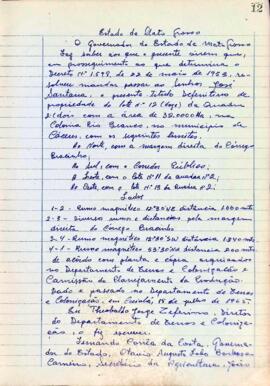 12
Estado de Mato Grosso
O Governador do Estado de Mato Grosso
Faz saber aos que o presente virem que,
em prosseguimento ao que determina o
Decreto Nº 1.598, de 22 de maio de 1953, re-
solveu mandar passar ao senhor José
Santana, o presente Titulo Definitivo de
propriedade do lote nº 12 (doze) da Quadra
2 (dois) com a área de 38.0000 Ha, na
Colonia Rio Branco, no municipio de
Cáceres, com os seguintes limites:
Ao Norte, com a margem direita do Córrego
Bracinho;
Ao Sul, com o Corredor Público;
A Leste, com o lote Nº 11 da quadra nº 2;
Ao Oeste, com o lote Nº 13 da quadra nº 2;
Lados
1-2 - Rumo magnético 12º30'NE distância
2-3 - Diversos rumos e distancias pela margem
direita do Corrego Bracinho
3-4 - Rumo magnético 12º30'SW distância
4-1 - Rumo magnético distancia 200 mts
de acôrdo com planta e cópia arquivados
no Departamento de Terras e Colonização e
Comissão de Planejamento da Produção.
Dado e passado no Departamento de Terras
e Colonização, em Cuiabá, de julho de
Eu Theobaldo Jorge Zeferino, Diretor
do Departamento de Terras e Coloniza-
ção, o fiz escrever.
Fernando Corrêa da Costa, Governa-
dor do Estado,
Secretário da Agricultura, João